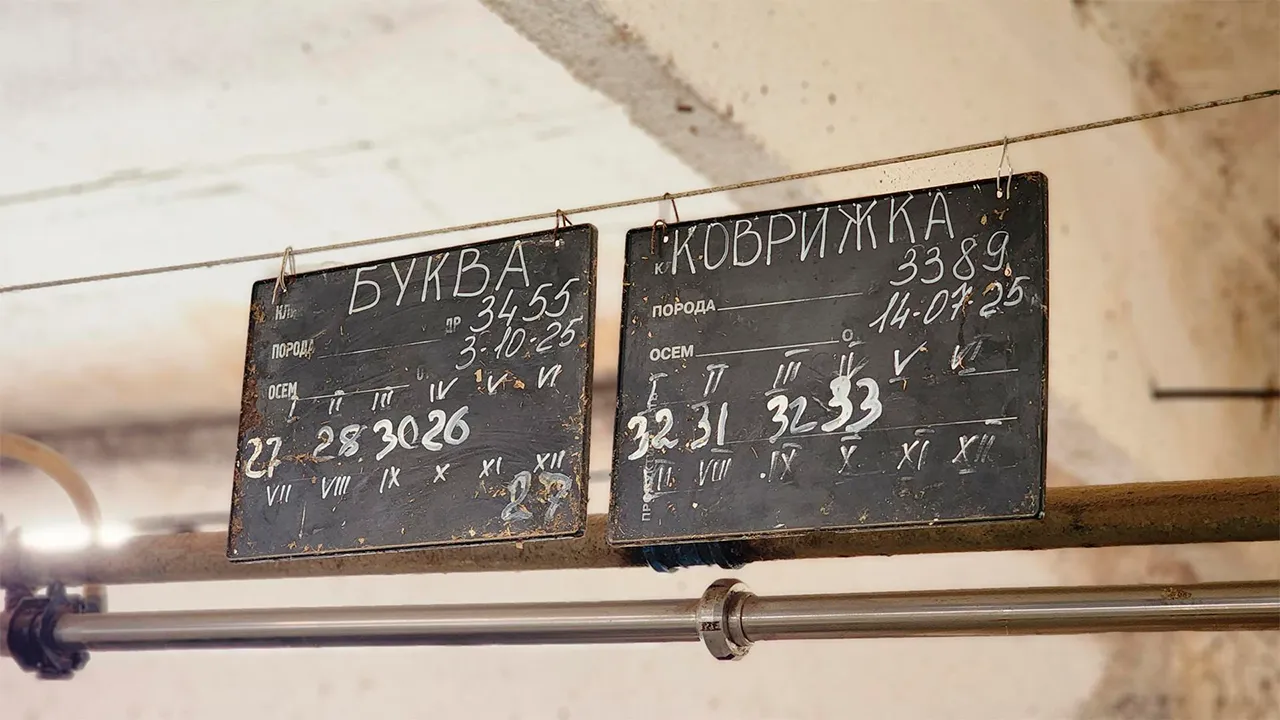 БУКВА
КЛ
ДР 3455
ПОРОДА 3-10-25
ОСЕМ О
I II III IV V VI
27 28 30 26
VII VIII IX X XI XII
27
КОВРИЖКА
К
3389
ПОРОДА 14-07-25
ОСЕМ О
I II III IV V VI
32 31 32 33
VII VIII IX X XI XII